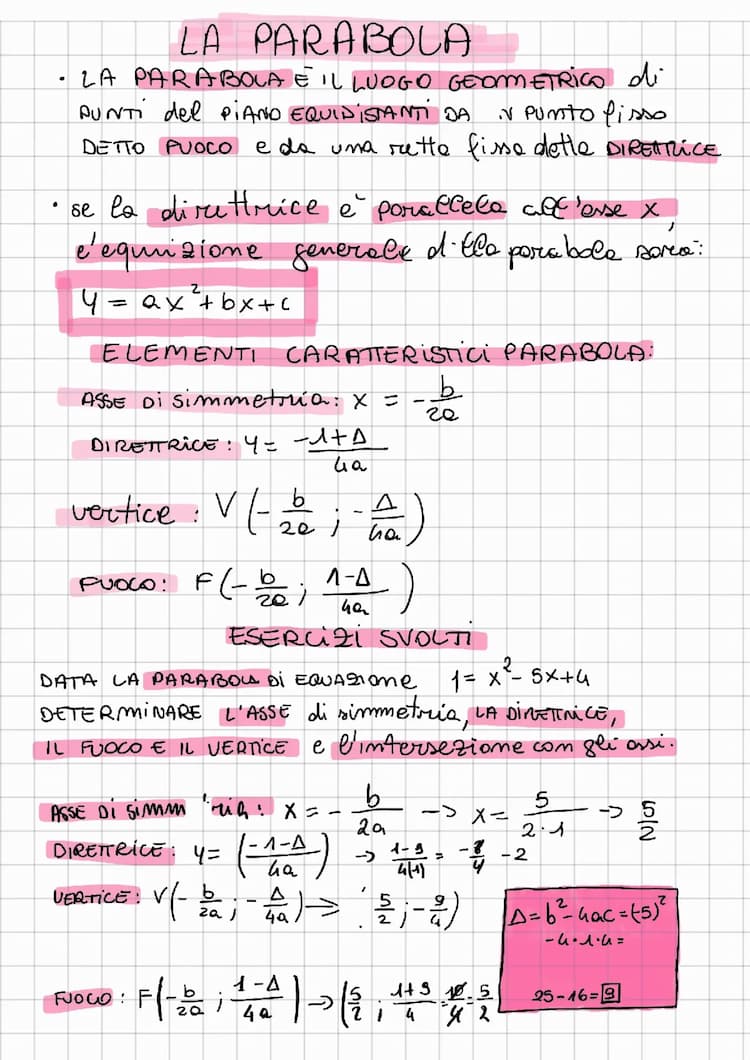 LA PARABOLA
• LA PARABOLA È IL LUOGO GEOMETRICO di
PUNTI del PIANO EQUIDISTANTI DA N PUNTO fisso
DETTO FUOCO e da una retta fissa detta DIRETTRICE
• se la direttrice e' parallela all'asse x
l'equazione generale d lla parabola sarà:
y = ax²+bx+c
ELEMENTI CARATTERISTICI PARABOLA:
ASSE Di simmetria: x = -b/2a
DIRETTRICE: y= -1+Δ/4a
vertice: V(-b/2a ; -Δ/4a)
FUOCO: F(-b/2a ; 1-Δ/4a)
ESERCIZI SVOLTI
DATA LA PARABOLA Di EQUAZIONE y= x²- 5x+4
DETERMINARE L'ASSE di simmetria, LA DIRETTRICE,
IL FUOCO E IL VERTICE e l'intersezione con gli assi.
ASSE Di SIMM 'ria: x = -b/2a -> x= 5/2·1 -> 5/2
DIRETTRICE: y= (-1-Δ/4a) -> 1-9/4(1) = -8/4 -2
VERTICE: V(-b/2a ; -Δ/4a) -> (5/2 ; -9/4)
Δ=b²-4ac=(-5)²
-4·1·4=
25-16=9
FUOCO: F(-b/2a ; 1-Δ/4a) -> (5/2 ; 1+9/4 = 10/4 = 5/2